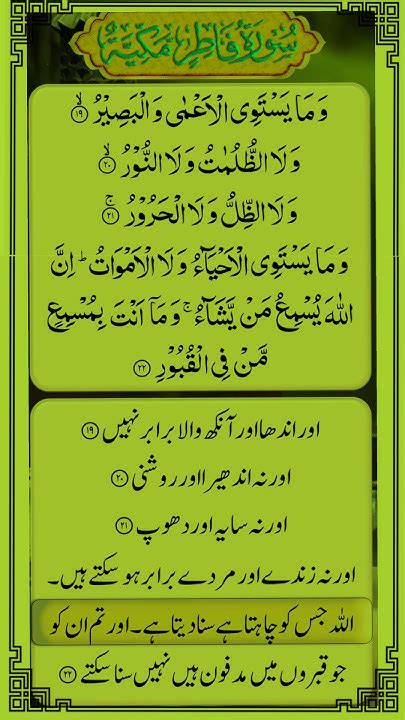 سُوْرَةُ فَاطِرٍ مَكِّيَّةٌ
وَمَا يَسْتَوِى الْاَعْمٰى وَالْبَصِيْرُ ۙ﴿۱۹﴾
وَلَا الظُّلُمٰتُ وَلَا النُّوْرُ ۙ﴿۲۰﴾
وَلَا الظِّلُّ وَلَا الْحَرُوْرُ ۚ﴿۲۱﴾
وَمَا يَسْتَوِى الْاَحْيَآءُ وَلَا الْاَمْوَاتُ ؕ اِنَّ
اللّٰهَ يُسْمِعُ مَنْ يَّشَآءُ ۚ وَمَاۤ اَنْتَ بِمُسْمِعٍ
مَّنْ فِى الْقُبُوْرِ ﴿۲۲﴾
اور اندھا اور آنکھ والا برابر نہیں ﴿۱۹﴾
اور نہ اندھیرا اور روشنی ﴿۲۰﴾
اور نہ سایہ اور دھوپ ﴿۲۱﴾
اور نہ زندے اور مردے برابر ہو سکتے ہیں۔
اللہ جس کو چاہتا ہے سنا دیتا ہے۔ اور تم ان کو
جو قبروں میں مدفون ہیں نہیں سنا سکتے ﴿۲۲﴾